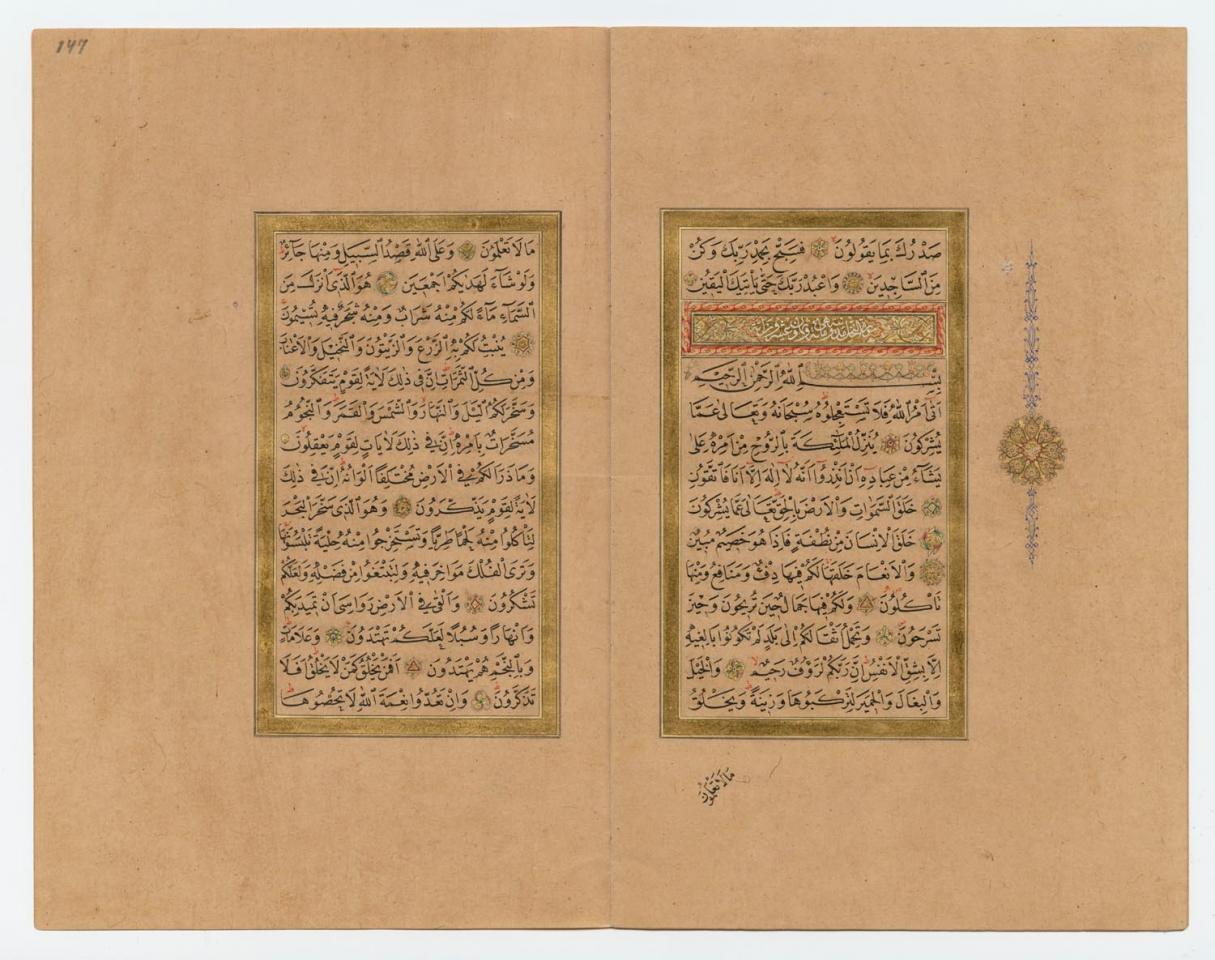 صَدْرُكَ بِمَا يَقُولُونَ فَسَبِّحْ بِحَمْدِ رَبِّكَ وَكُنْ
مِنَ السَّاجِدِينَ وَاعْبُدْ رَبَّكَ حَتّٰى يَأْتِيَكَ الْيَقِينُ
بِسْمِ اللّٰهِ الرَّحْمٰنِ الرَّحِيمِ
اَتٰى اَمْرُ اللّٰهِ فَلَا تَسْتَعْجِلُوهُ سُبْحَانَهُ وَتَعَالٰى عَمَّا
يُشْرِكُونَ يُنَزِّلُ الْمَلٰئِكَةَ بِالرُّوحِ مِنْ اَمْرِهِ عَلٰى
يَشَٓاءُ مِنْ عِبَادِهِ اَنْ اَنْذِرُوا اَنَّهُ لَٓا اِلٰهَ اِلَّٓا اَنَا فَاتَّقُونِ
خَلَقَ السَّمٰوَاتِ وَالْاَرْضَ بِالْحَقِّ تَعَالٰى عَمَّا يُشْرِكُونَ
خَلَقَ الْاِنْسَانَ مِنْ نُطْفَةٍ فَاِذَا هُوَ خَصِيمٌ مُبِينٌ
وَالْاَنْعَامَ خَلَقَهَا لَكُمْ فِيهَا دِفْءٌ وَمَنَافِعُ وَمِنْهَا
تَأْكُلُونَ وَلَكُمْ فِيهَا جَمَالٌ حِينَ تُرِيحُونَ وَحِينَ
تَسْرَحُونَ وَتَحْمِلُ اَثْقَالَكُمْ اِلٰى بَلَدٍ لَمْ تَكُونُوا بَالِغِيهِ
اِلَّا بِشِقِّ الْاَنْفُسِ اِنَّ رَبَّكُمْ لَرَؤُفٌ رَحِيمٌ وَالْخَيْلَ
وَالْبِغَالَ وَالْحَمِيرَ لِتَرْكَبُوهَا وَزِينَةً وَيَخْلُقُ
مَا لَا تَعْلَمُونَ
147
مَا لَا تَعْلَمُونَ وَعَلَى اللّٰهِ قَصْدُ السَّبِيلِ وَمِنْهَا جَٓائِرٌ
وَلَوْ شَٓاءَ لَهَدٰيكُمْ اَجْمَعِينَ هُوَ الَّذِٓى اَنْزَلَ مِنَ
السَّمَٓاءِ مَٓاءً لَكُمْ مِنْهُ شَرَابٌ وَمِنْهُ شَجَرٌ فِيهِ تُسِيمُونَ
يُنْبِتُ لَكُمْ بِهِ الزَّرْعَ وَالزَّيْتُونَ وَالنَّخِيلَ وَالْاَعْنَابَ
وَمِنْ كُلِّ الثَّمَرَاتِ اِنَّ فِى ذٰلِكَ لَاٰيَةً لِقَوْمٍ يَتَفَكَّرُونَ
وَسَخَّرَ لَكُمُ الَّيْلَ وَالنَّهَارَ وَالشَّمْسَ وَالْقَمَرَ وَالنُّجُومُ
مُسَخَّرَاتٌ بِاَمْرِهِ اِنَّ فِى ذٰلِكَ لَاٰيَاتٍ لِقَوْمٍ يَعْقِلُونَ
وَمَا ذَرَاَ لَكُمْ فِى الْاَرْضِ مُخْتَلِفًا اَلْوَانُهُ اِنَّ فِى ذٰلِكَ
لَاٰيَةً لِقَوْمٍ يَذَّكَّرُونَ وَهُوَ الَّذِى سَخَّرَ الْبَحْرَ
لِتَأْكُلُوا مِنْهُ لَحْمًا طَرِيًّا وَتَسْتَخْرِجُوا مِنْهُ حِلْيَةً تَلْبَسُونَهَا
وَتَرَى الْفُلْكَ مَوَاخِرَ فِيهِ وَلِتَبْتَغُوا مِنْ فَضْلِهِ وَلَعَلَّكُمْ
تَشْكُرُونَ وَاَلْقٰى فِى الْاَرْضِ رَوَاسِىَ اَنْ تَمِيدَ بِكُمْ
وَاَنْهَارًا وَسُبُلًا لَعَلَّكُمْ تَهْتَدُونَ وَعَلَامَاتٍ
وَبِالنَّجْمِ هُمْ يَهْتَدُونَ اَفَمَنْ يَخْلُقُ كَمَنْ لَا يَخْلُقُ اَفَلَا
تَذَكَّرُونَ وَاِنْ تَعُدُّوا نِعْمَةَ اللّٰهِ لَا تُحْصُوهَا